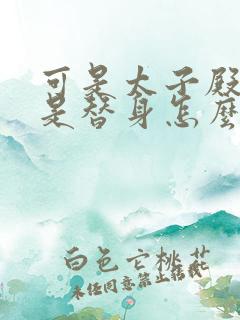 可是太子殿
是替身怎麼
白色亡桃花
未经同意禁止转载